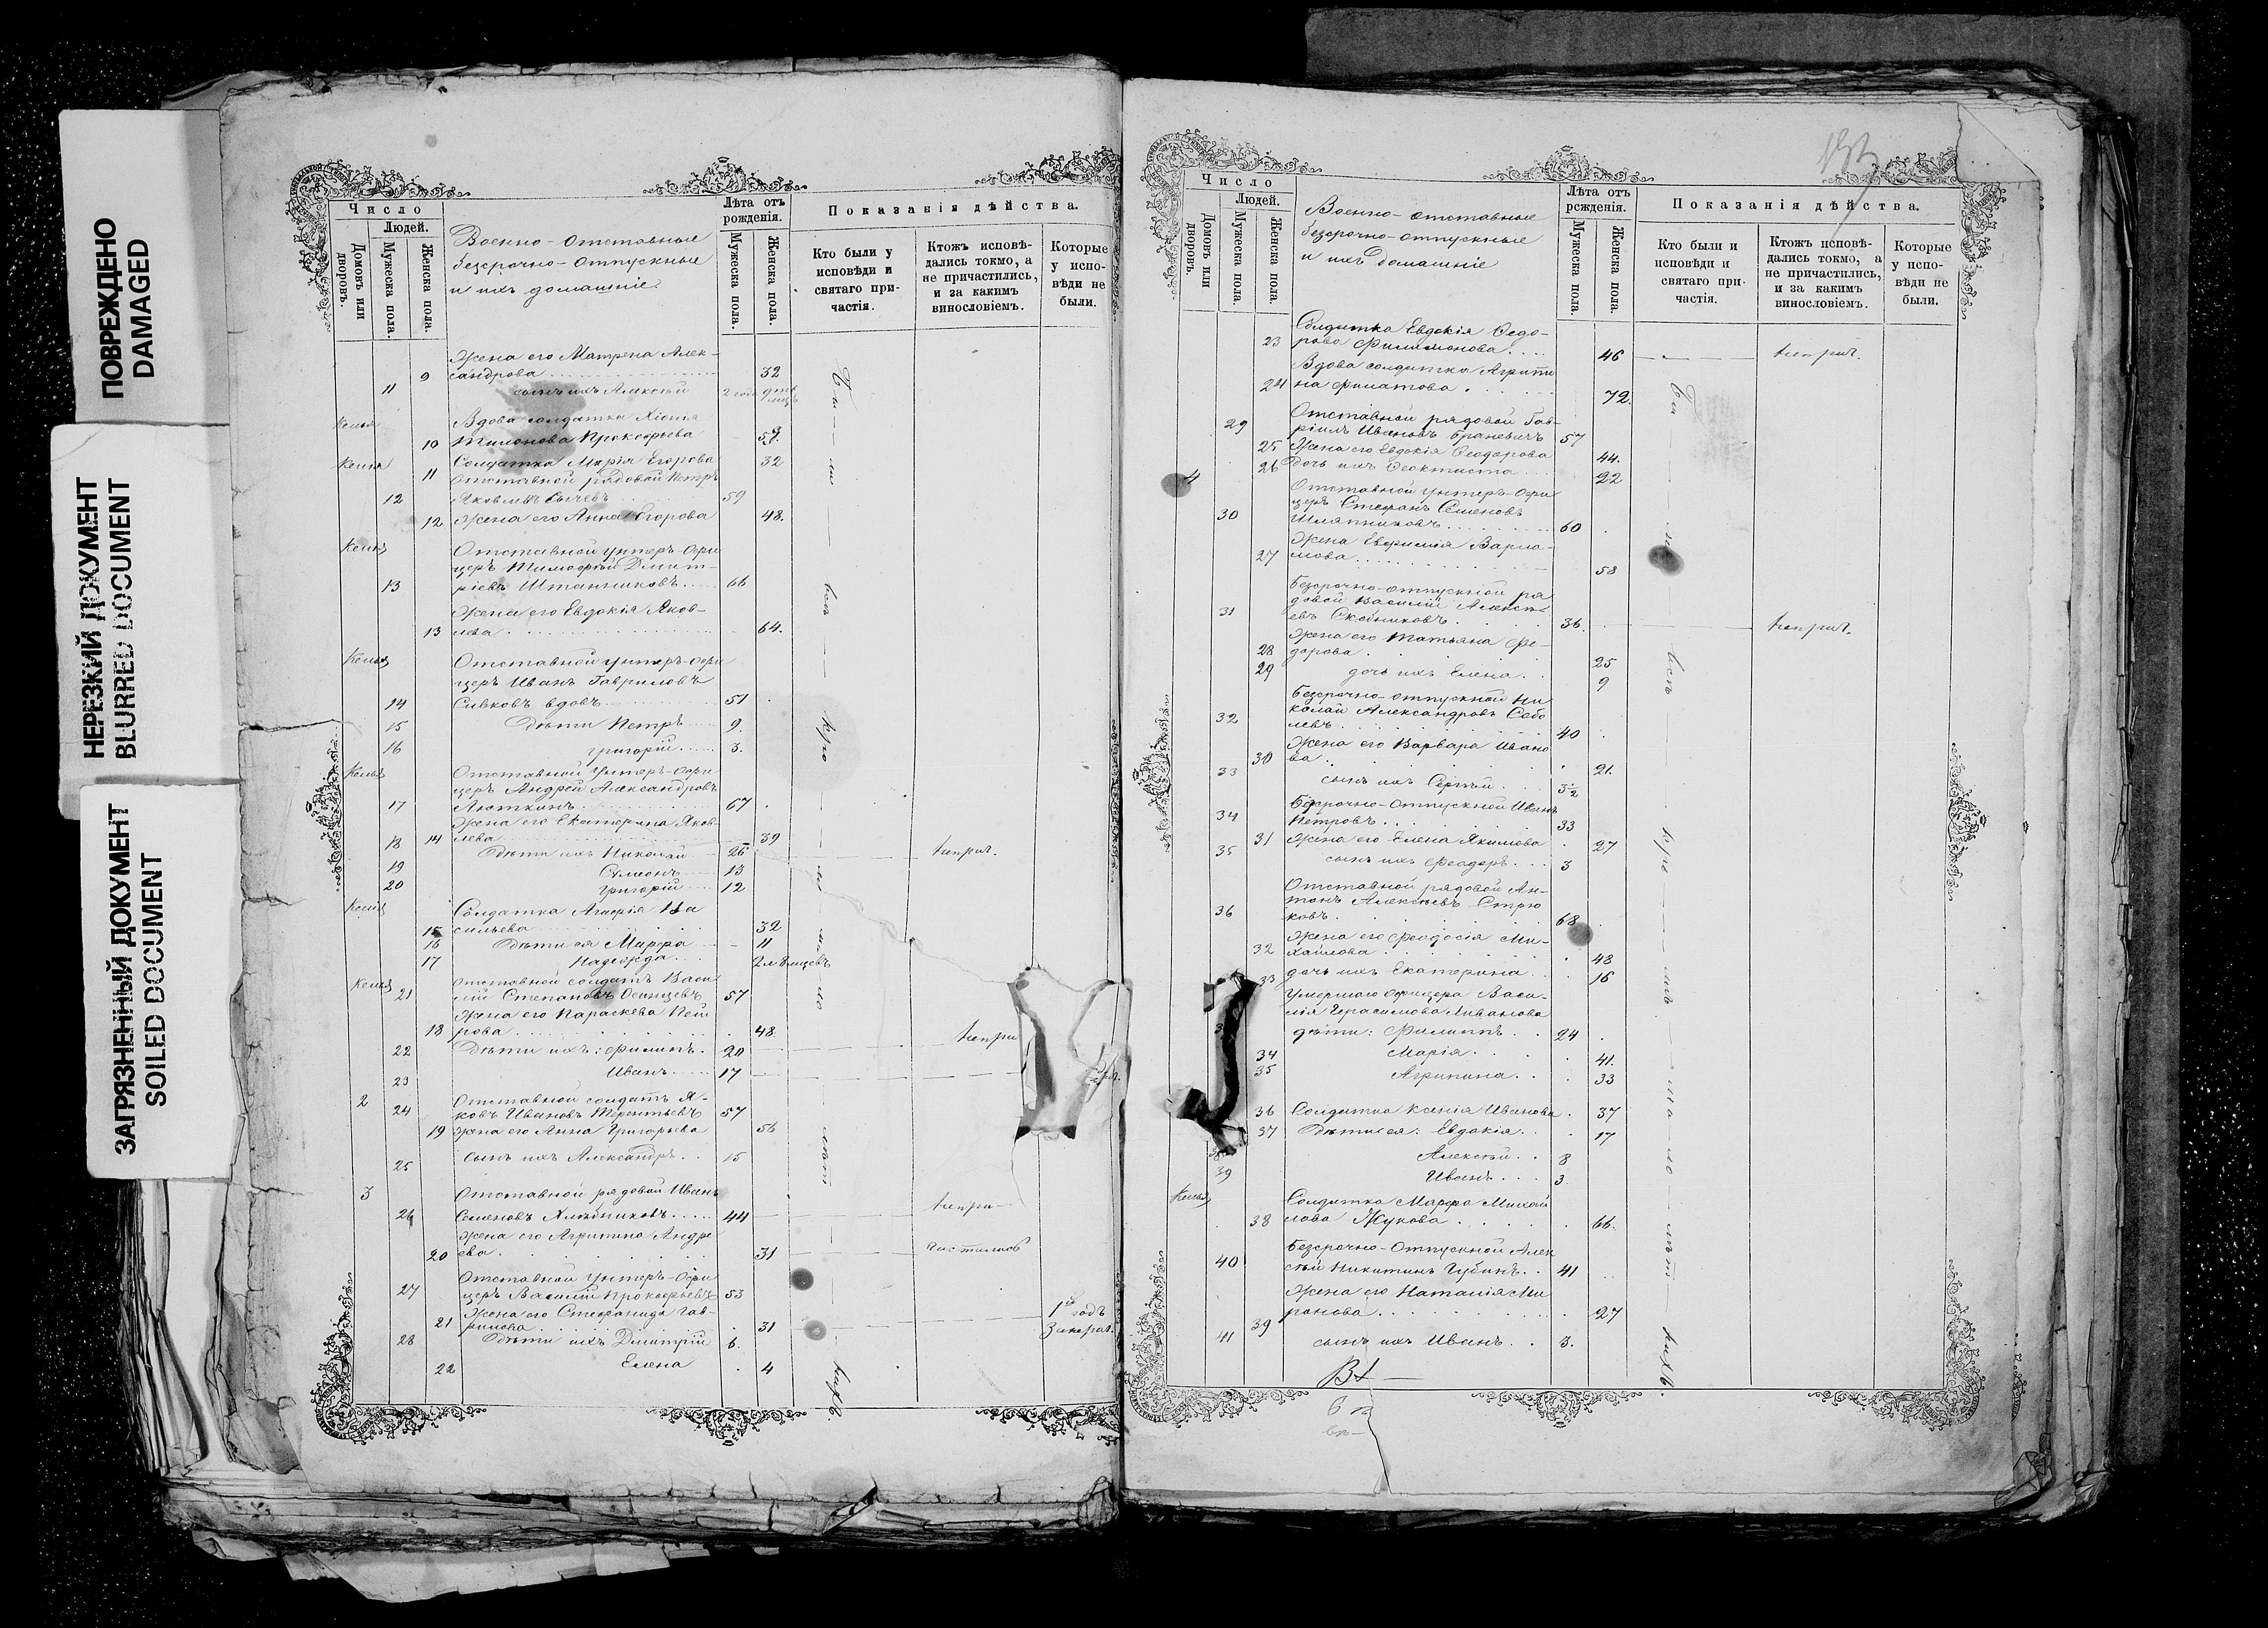 ПОВРЕЖДЕНО
DAMAGED
НЕРЕЗКИЙ ДОКУМЕНТ
BLURRED DOCUMENT
ЗАГРЯЗНЕННЫЙ ДОКУМЕНТ
SOILED DOCUMENT
Число
Людей.
Домовъ или дворовъ.
Мужеска пола.
Женска пола.
Военно-отставные
безсрочно-отпускные
и ихъ домашніе
Лѣта отъ рожденія.
Мужеска пола.
Женска пола.
Показанія дѣйства.
Кто были у исповѣди и святаго причастія.
Ктожъ исповѣдались токмо, а не причастились, и за какимъ винословіемъ.
Которые у исповѣди не были.
Жена его Матрена Алек-
9 сандрова 32
11 сынъ ихъ Алексѣй 2
Келья Вдова солдатка Хіонія
10 Прокофьева 59.
Келья 11 Солдатка Марія Егорова 32
Отставной рядовой Петръ
12 Яковлевъ Сычевъ 59
12 Жена его Анна Егорова 48.
Келья Отставной унтеръ-офи
церъ Тимофей Дмит-
13 ріевъ Штанниковъ 66
Жена его Евдокія Яков-
13 лева 64.
Келья Отставной унтеръ-офи
церъ Иванъ Гавриловъ
14 Сивковъ вдовъ 51
15 Дѣти Петръ 9.
16 Григорій 3.
Келья Отставной унтеръ-офи
церъ Андрей Александровъ
17 Люткинъ 67
Жена его Екатерина Яков-
14 лева 39
18 Дѣти ихъ Николай 26 неприч.
19 Симеонъ 13
20 Григорій 12
Келья Солдатка Агафія Ва
15 сильева 32
16 Дѣти ея Марфа 11
17 Надежда
Келья Отставной солдатъ Васи
21 лій Степановъ Осинцевъ 57
Жена его Параскева Пет
18 рова 48
22 Дѣти ихъ: Филипъ. 20 непри
23 Иванъ 17
2 Отставной солдатъ Я-
24 ковъ Ивановъ Терентьевъ 57
19 Жена его Анна Григорьева 56
25 сынъ ихъ Александръ 15
3 Отставной рядовой Иванъ
26 Семеновъ Хлѣбниковъ 44 непри-
Жена его Агрипина Андре
20 ева 31 частились
Отставной унтеръ-офи
27 церъ Василій Прокофьевъ 53
Жена его Стефанида Гав-
21 рилова 31
1й годъ
28 Дѣти ихъ Дмитрій 6.
22 Елена 4
Число
Людей.
Домовъ или дворовъ.
Мужеска пола.
Женска пола.
Военно-отставные
безсрочно-отпускные
и ихъ домашніе
Лѣта отъ рожденія.
Мужеска пола
Женска пола.
Показанія дѣйства.
Кто были и исповѣди и святаго причастія.
Ктожъ исповѣдались токмо, а не причастились, и за какимъ винословіемъ.
Которые у исповѣди не были.
Солдатка Евдокія Ѳедо-
23 рова Филимонова 46 неприч.
Вдова солдатка Агрипи
24 на Филатова 72.
Отставной рядовой Гав-
29 ріилъ Ивановъ 57
25 Жена его Евдокія Ѳеодорова 44.
26 Дочь ихъ Ѳеоктиста 22
4 Отставной унтеръ-офи
церъ Стефанъ Семеновъ
30 Шляпниковъ 60
Жена Евфимія Варла-
27 мова 58
Безсрочно-отпускной ря
довой Василій Алексѣ
31 евъ Скобниковъ 36. неприч.
Жена его Татьяна Фе-
28 дорова 25
29 дочь ихъ Елена 9
Безсрочно-отпускной Ни
колай Александровъ Собо
32 левъ 40
Жена его Варвара Ивано
30 ва 21.
33 сынъ ихъ Сергѣй 3½
Безсрочно-отпускной Иванъ
34 Петровъ 33
31 Жена его Елена Якимова 27
35 сынъ ихъ Феодоръ 3
Отставной рядовой Ан-
тонъ Алексѣевъ Стрю
36 ковъ 68
Жена его Феодосія Ми-
32 хайлова 48
33 дочь ихъ Екатерина 16
Умершаго офицера Васи-
лія Герасимова Ливанова
дѣти: Филиппъ 24
34 Марія 41.
35 Агрипина 33
36 Солдатка Ксенія Иванова 37
37 Дѣти ея: Евдокія 17
38 Алексѣй 8
39 Иванъ 3.
Келья Солдатка Марфа Михай
38 лова Жукова 66.
Безсрочно-отпускной Алек
40 сѣй Никитинъ Губинъ 41
Жена его Наталія Ми
39 ронова 27
41 сынъ ихъ Иванъ 3.